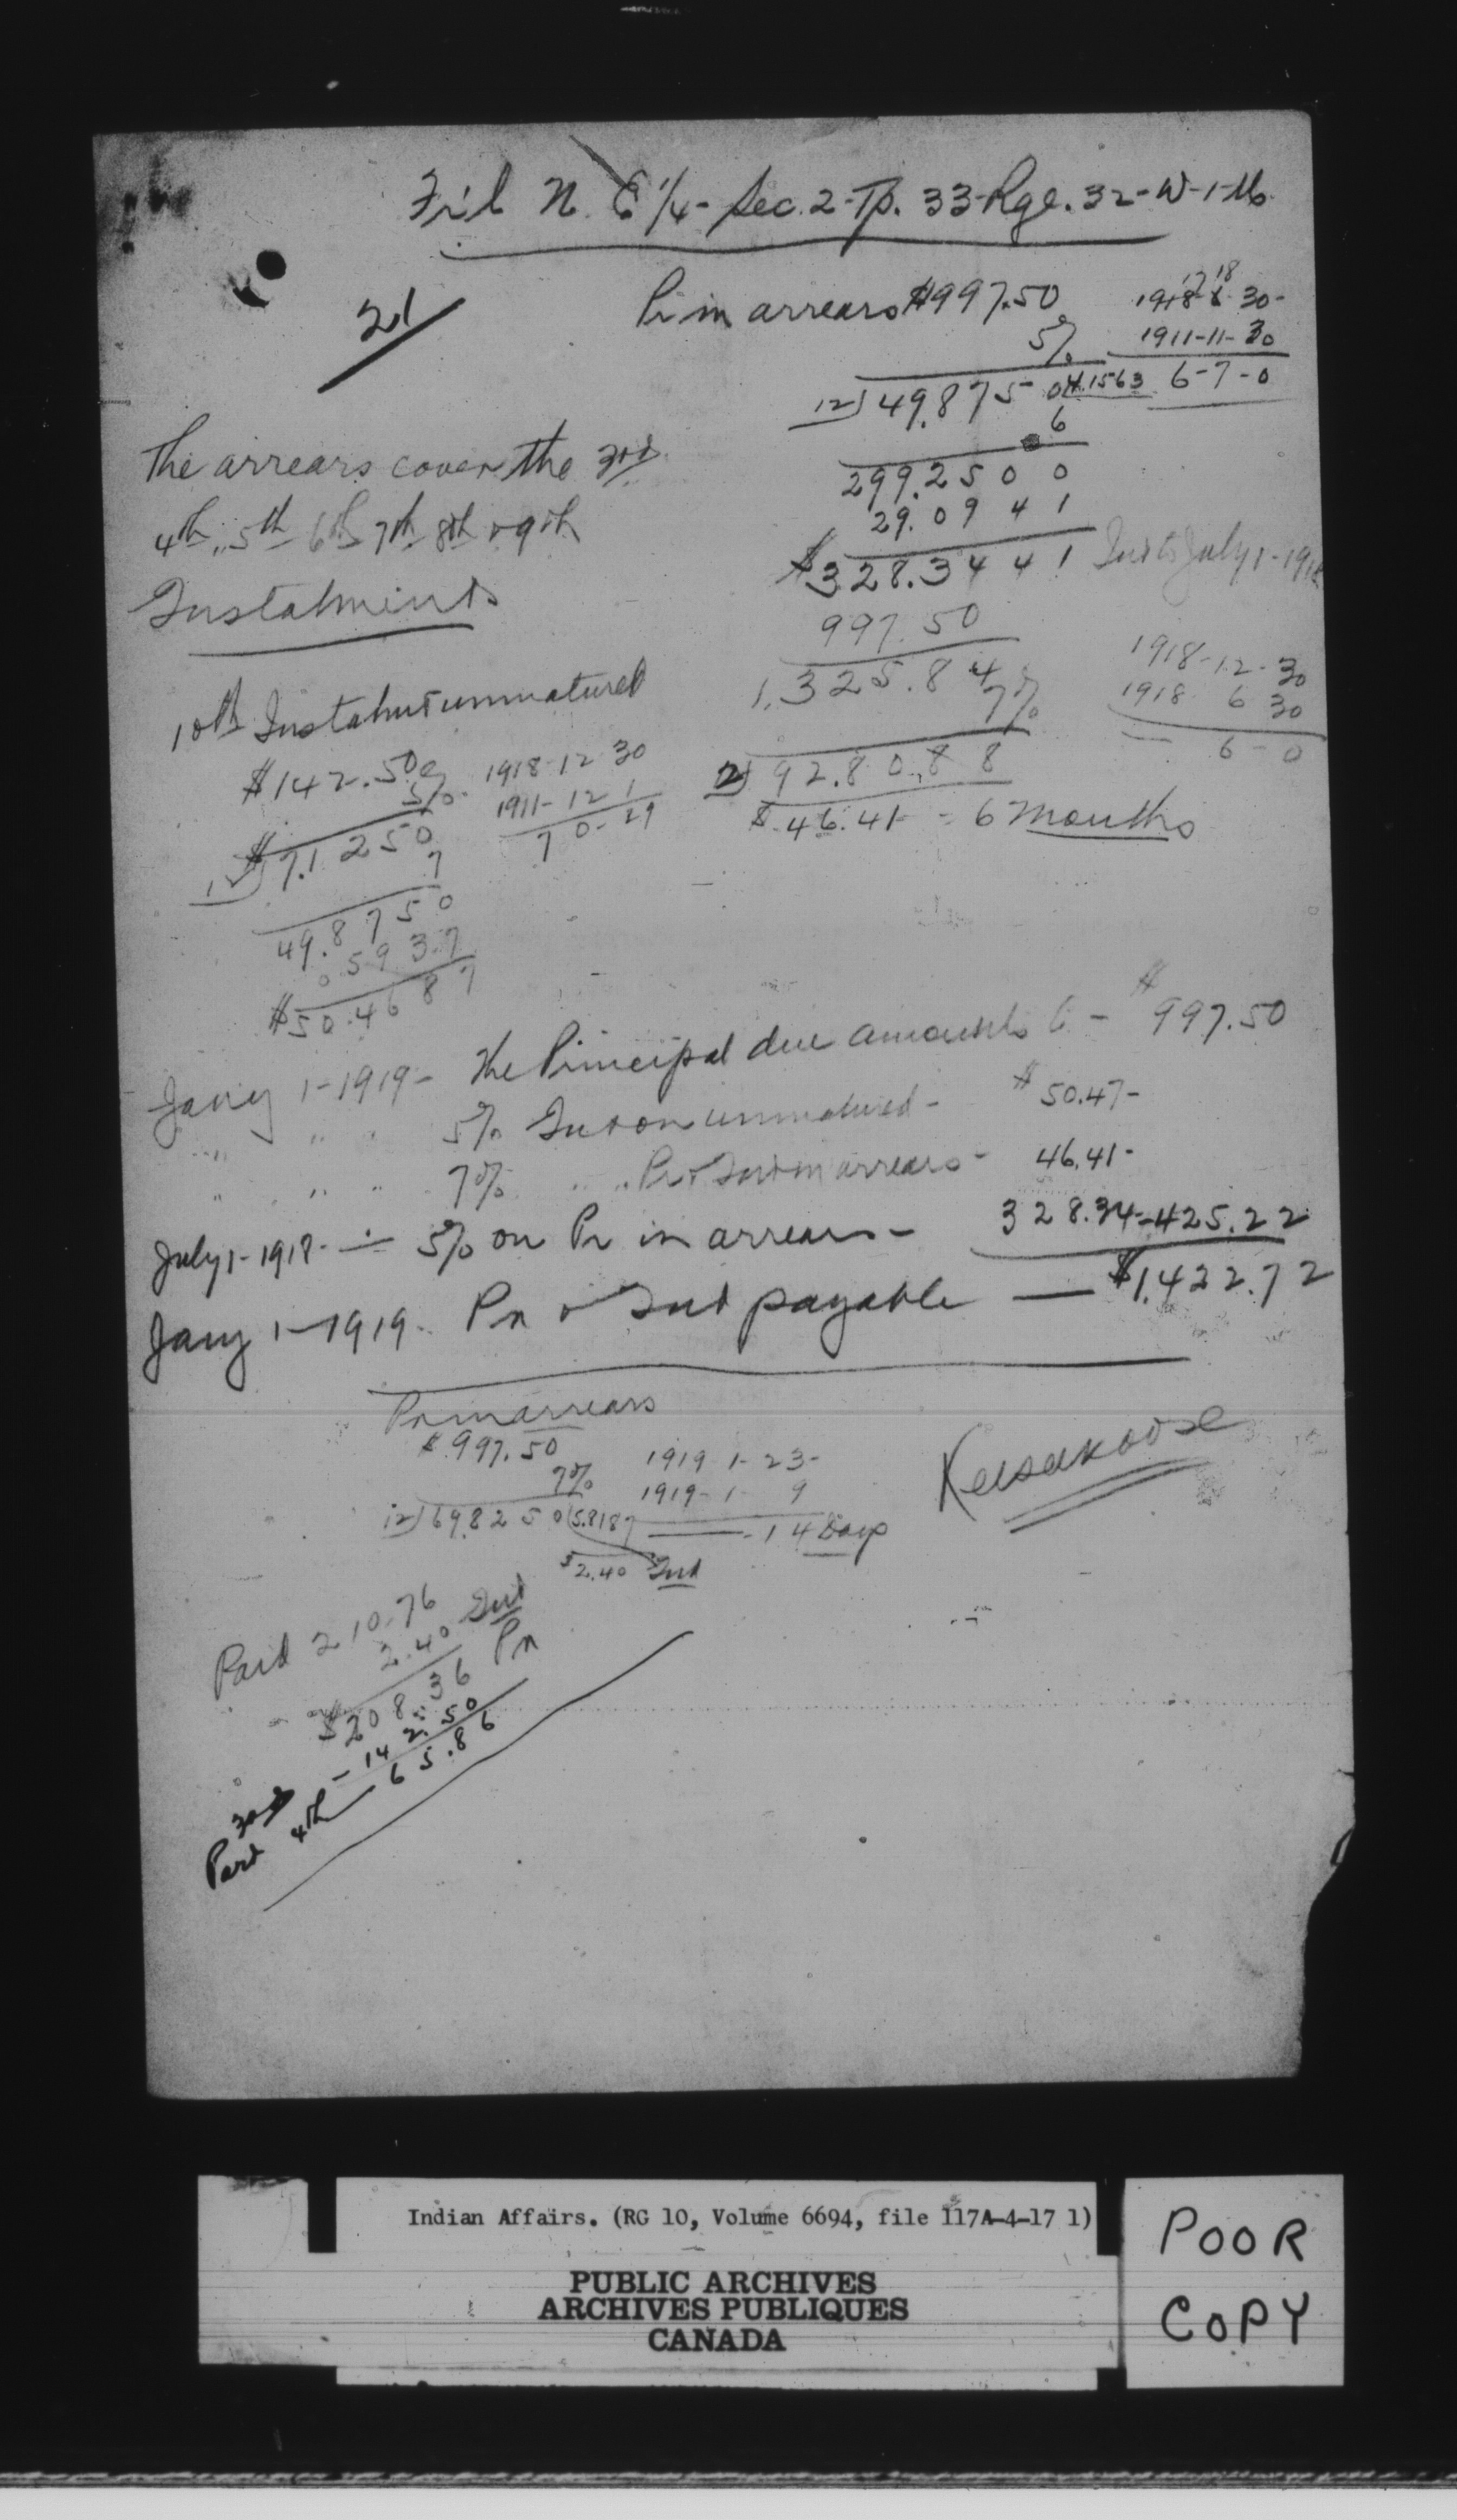 Frl N. E ¼- Sec. 2-Tp. 33-Rge. 32-W-1-M
21
Pr in arrears $997.50
5%
12) 49.875 0 (4.1563
6
299.2500
29.0941
$328.3441 Int to July 1-1918
997.50
1,325.84
7%
2) 92.8088
$46.41- = 6 Months
17 18
1918-6-30-
1911-11-30
6-7-0
1918-12-30
1918 6 30
6-0
The arrears cover the 3rd
4th, 5th 6th 7th 8th & 9th
Instalments
10th Instalmt unmatured
$142.50
5%
12) $7.1250
7
49.8750
0.5937
$50.4687
1918-12 30
1911-12 1
7 0-29
Jany 1-1919- The Principal due amounts to - $997.50
" " " 5% Int on unmatured - $50.47-
" " " 7% " " Pr & Int in arrears - 46.41-
July 1-1918- — 5% on Pr in arrears - 328.34-425.22
Jany 1-1919- Pr & Int payable — $1,422.72
Pr in arrears
$997.50
7%
12) 69.8250 (5.8187
$2.40 Int
1919-1-23-
1919-1- 9
- 14 Days
Keesakoose
Paid 210.76
2.40 Int
$208.36 Pr
3rd - 142.50
Part 4th - 65.86
Indian Affairs. (RG 10, Volume 6694, file 117A-4-17 1)
PUBLIC ARCHIVES
ARCHIVES PUBLIQUES
CANADA
POOR
COPY